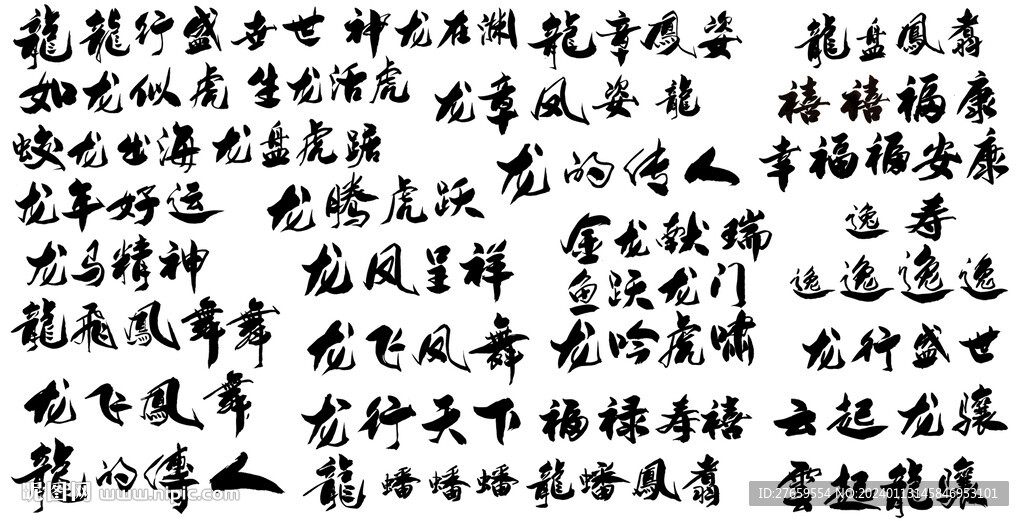 龍龍行盛世世 神龙在渊 龍章鳳姿 龍盘鳳翥
如龙似虎 生龙活虎 龙章凤姿龍 禧禧福康
蛟龙出海 龙盘虎踞 龙的传人 幸福福安康
龙年好运 龙腾虎跃 金龙献瑞 逸寿
龙马精神 龙凤呈祥 鱼跃龙门 逸逸逸逸
龍飛鳳舞舞 龙飞凤舞 龙吟虎啸 龙行盛世
龙飞鳳舞 龙行天下 福禄寿禧 云起龙骧
龍的傳人 龍蟠蟠蟠 龍蟠鳳翥 雲起龍驤
昵图网 www.nipic.com
ID:27659554 NO:20240113145846953101